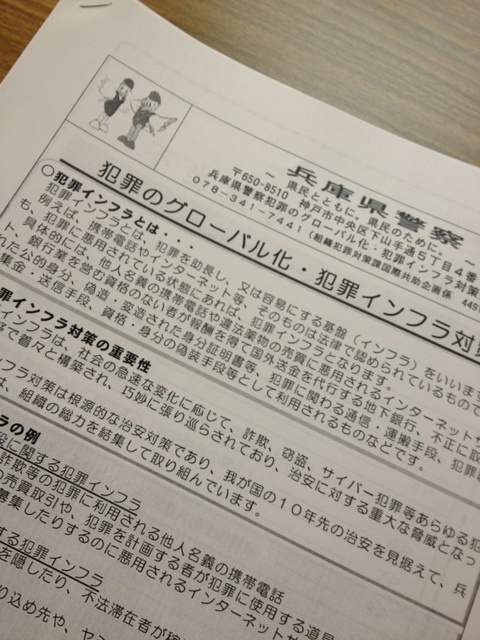 兵庫県警察
～ 県民とともに、県民のために ～
〒650-8510 神戸市中央区下山手通5丁目4番
兵庫県警察犯罪のグローバル化・犯罪インフラ対策
078-341-7441(組織犯罪対策課国際共助企画係 449
犯罪のグローバル化・犯罪インフラ対策
○犯罪インフラとは・・・
犯罪インフラとは、犯罪を助長し、又は容易にする基盤(インフラ)をいいます
例えば、携帯電話やインターネット等、そのものは法律で認められているもので
も、犯罪に悪用されている状態にあれば、犯罪インフラとなります。
具体的には、他人名義の携帯電話や違法薬物の売買に悪用されるインターネット
ト、銀行業を営む資格のない者が報酬を得て国外送金を代行する地下銀行、不正に取
れた公的身分、偽造・変造された身分証明書等、犯罪に関わる通信・運搬手段、犯罪
集金・送信手段、資格・身分の偽装手段等として利用されるものなどです。
罪インフラ対策の重要性
インフラは、社会の急速な変化に応じて、詐欺、窃盗、サイバー犯罪等あらゆる犯
で着々と構築され、巧妙に張り巡らされており、治安に対する重大な脅威となっ
ンフラ対策は根源的な治安対策であり、我が国の10年先の治安を見据えて、兵
は、組織の総力を結集して取り組んでいます。
ラの例
段に関する犯罪インフラ
詐欺等の犯罪に利用される他人名義の携帯電話
の売買取引や、犯罪を計画する者が犯罪に使用する道具
募集したりするのに悪用されるインターネット
する犯罪インフラ
を隠したり、不法滞在者が稼
り込め先や、ヤミ